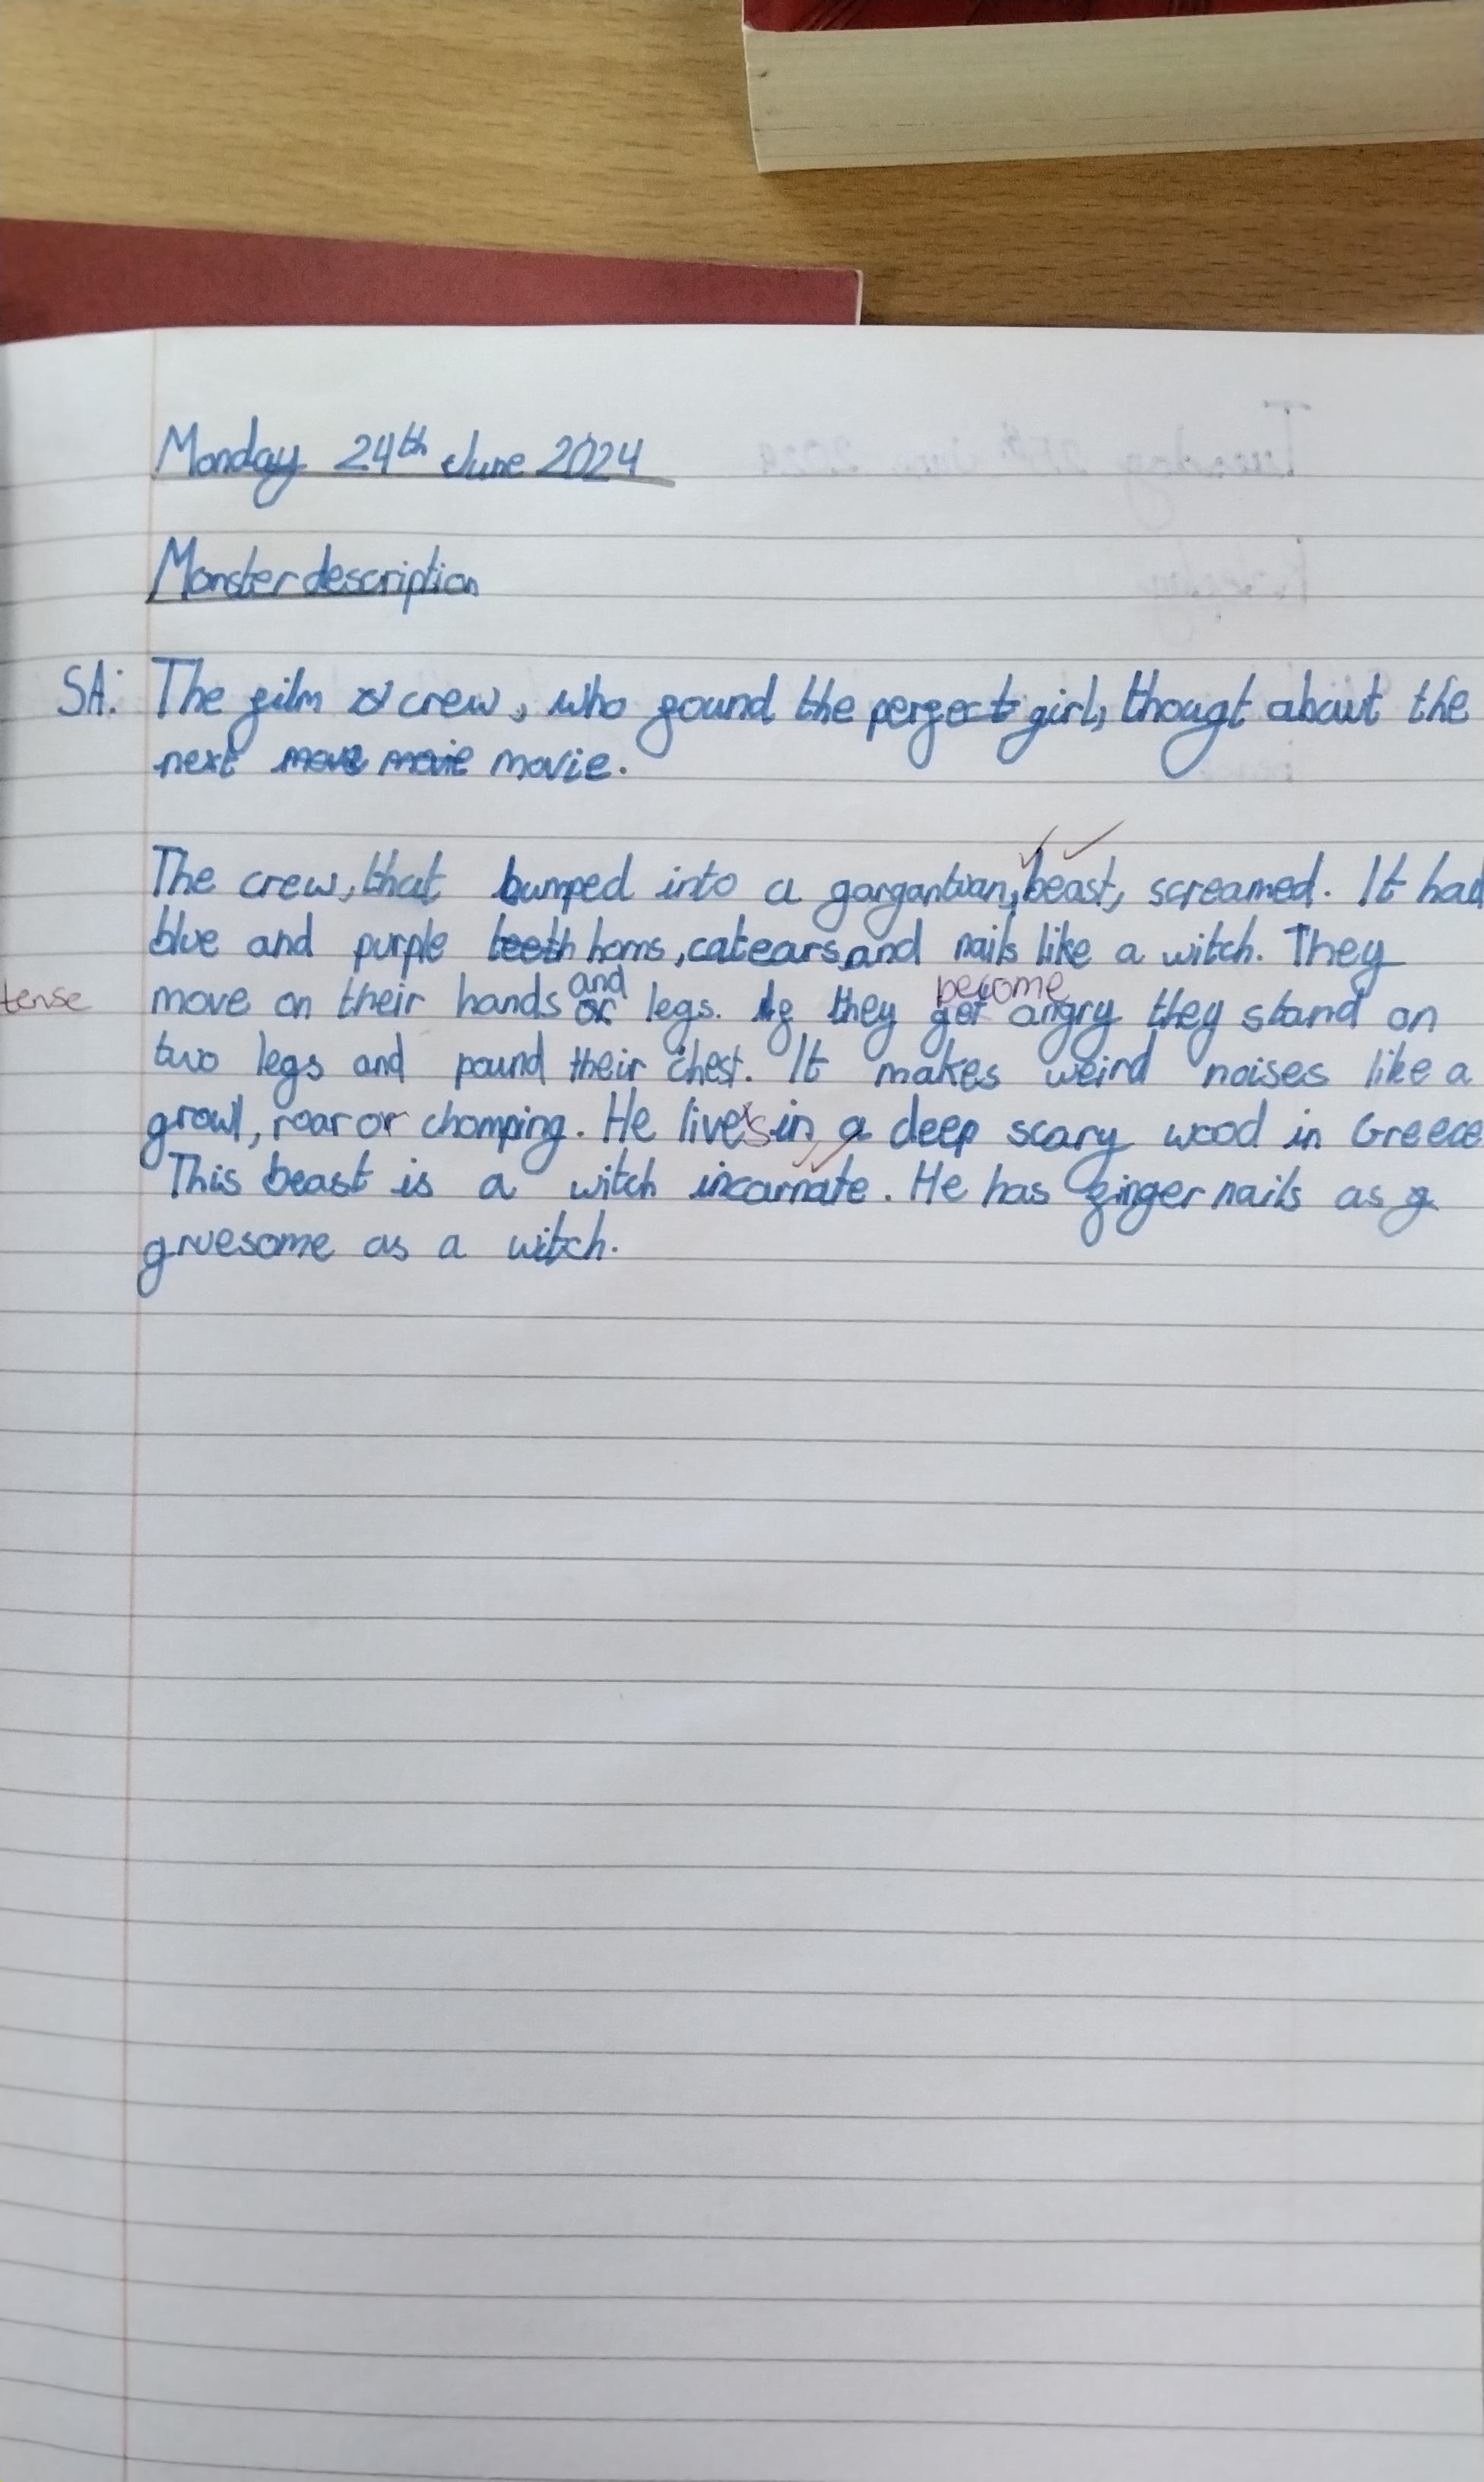 Monday 24th June 2024
Monster description
SA: The film crew, who found the perfect girl, thougt about the
next move movie movie.
The crew, that bumped into a gargantuan, beast, screamed. It had
blue and purple teeth horns, cat ears and nails like a witch. They
and become
tense move on their hands or legs. If they get angry they stand on
two legs and pound their chest. It makes weird noises like a
growl, roar or chomping. He lives in a deep scary wood in Greece
This beast is a witch incarnate. He has finger nails as g
gruesome as a witch.